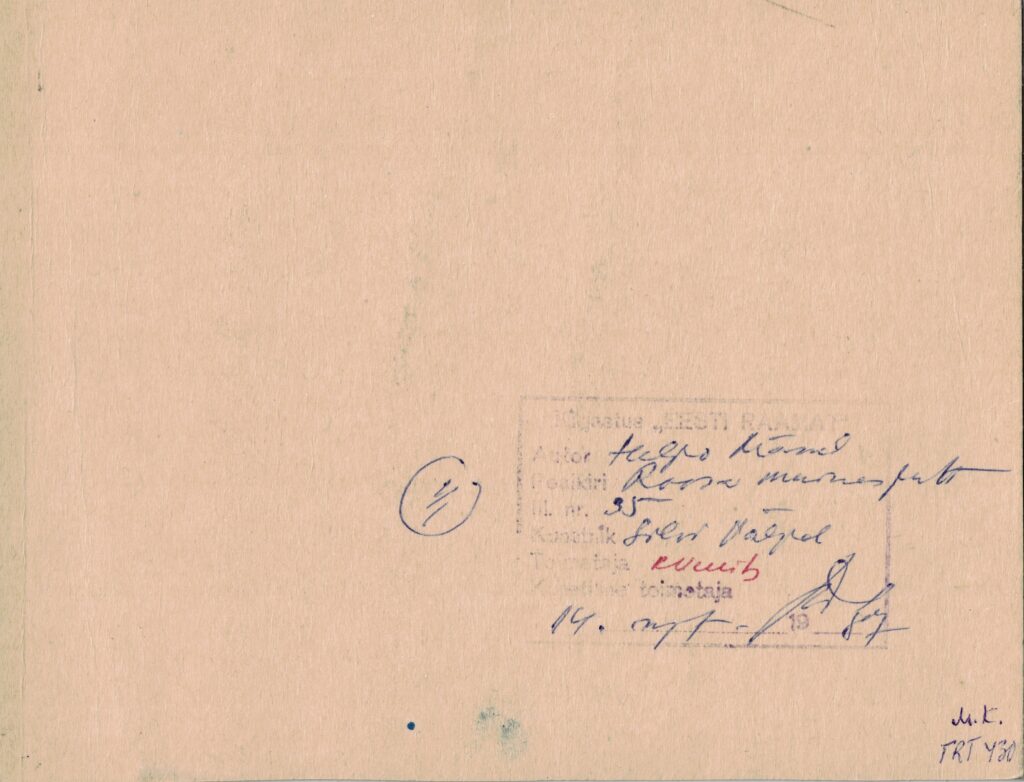 Kirjastus „EESTI RAAMAT"
Autor Heljo Mänd
Pealkiri Roosa
Ill. nr. 35
Kunstnik Silvi Väljal
Toimetaja
Kunstiline toimetaja
14. 19
M.K.
TRT 430